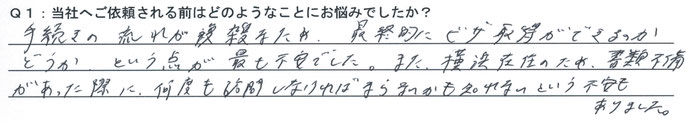 Q1：当社へご依頼される前はどのようなことにお悩みでしたか？
手続きの流れが複雑なため、最終的にビザ取得ができるのか
どうか、という点が最も不安でした。また、横浜在住のため、書類不備
があった際に、何度も訪問しなければならないかも知れないという不安も
ありました。